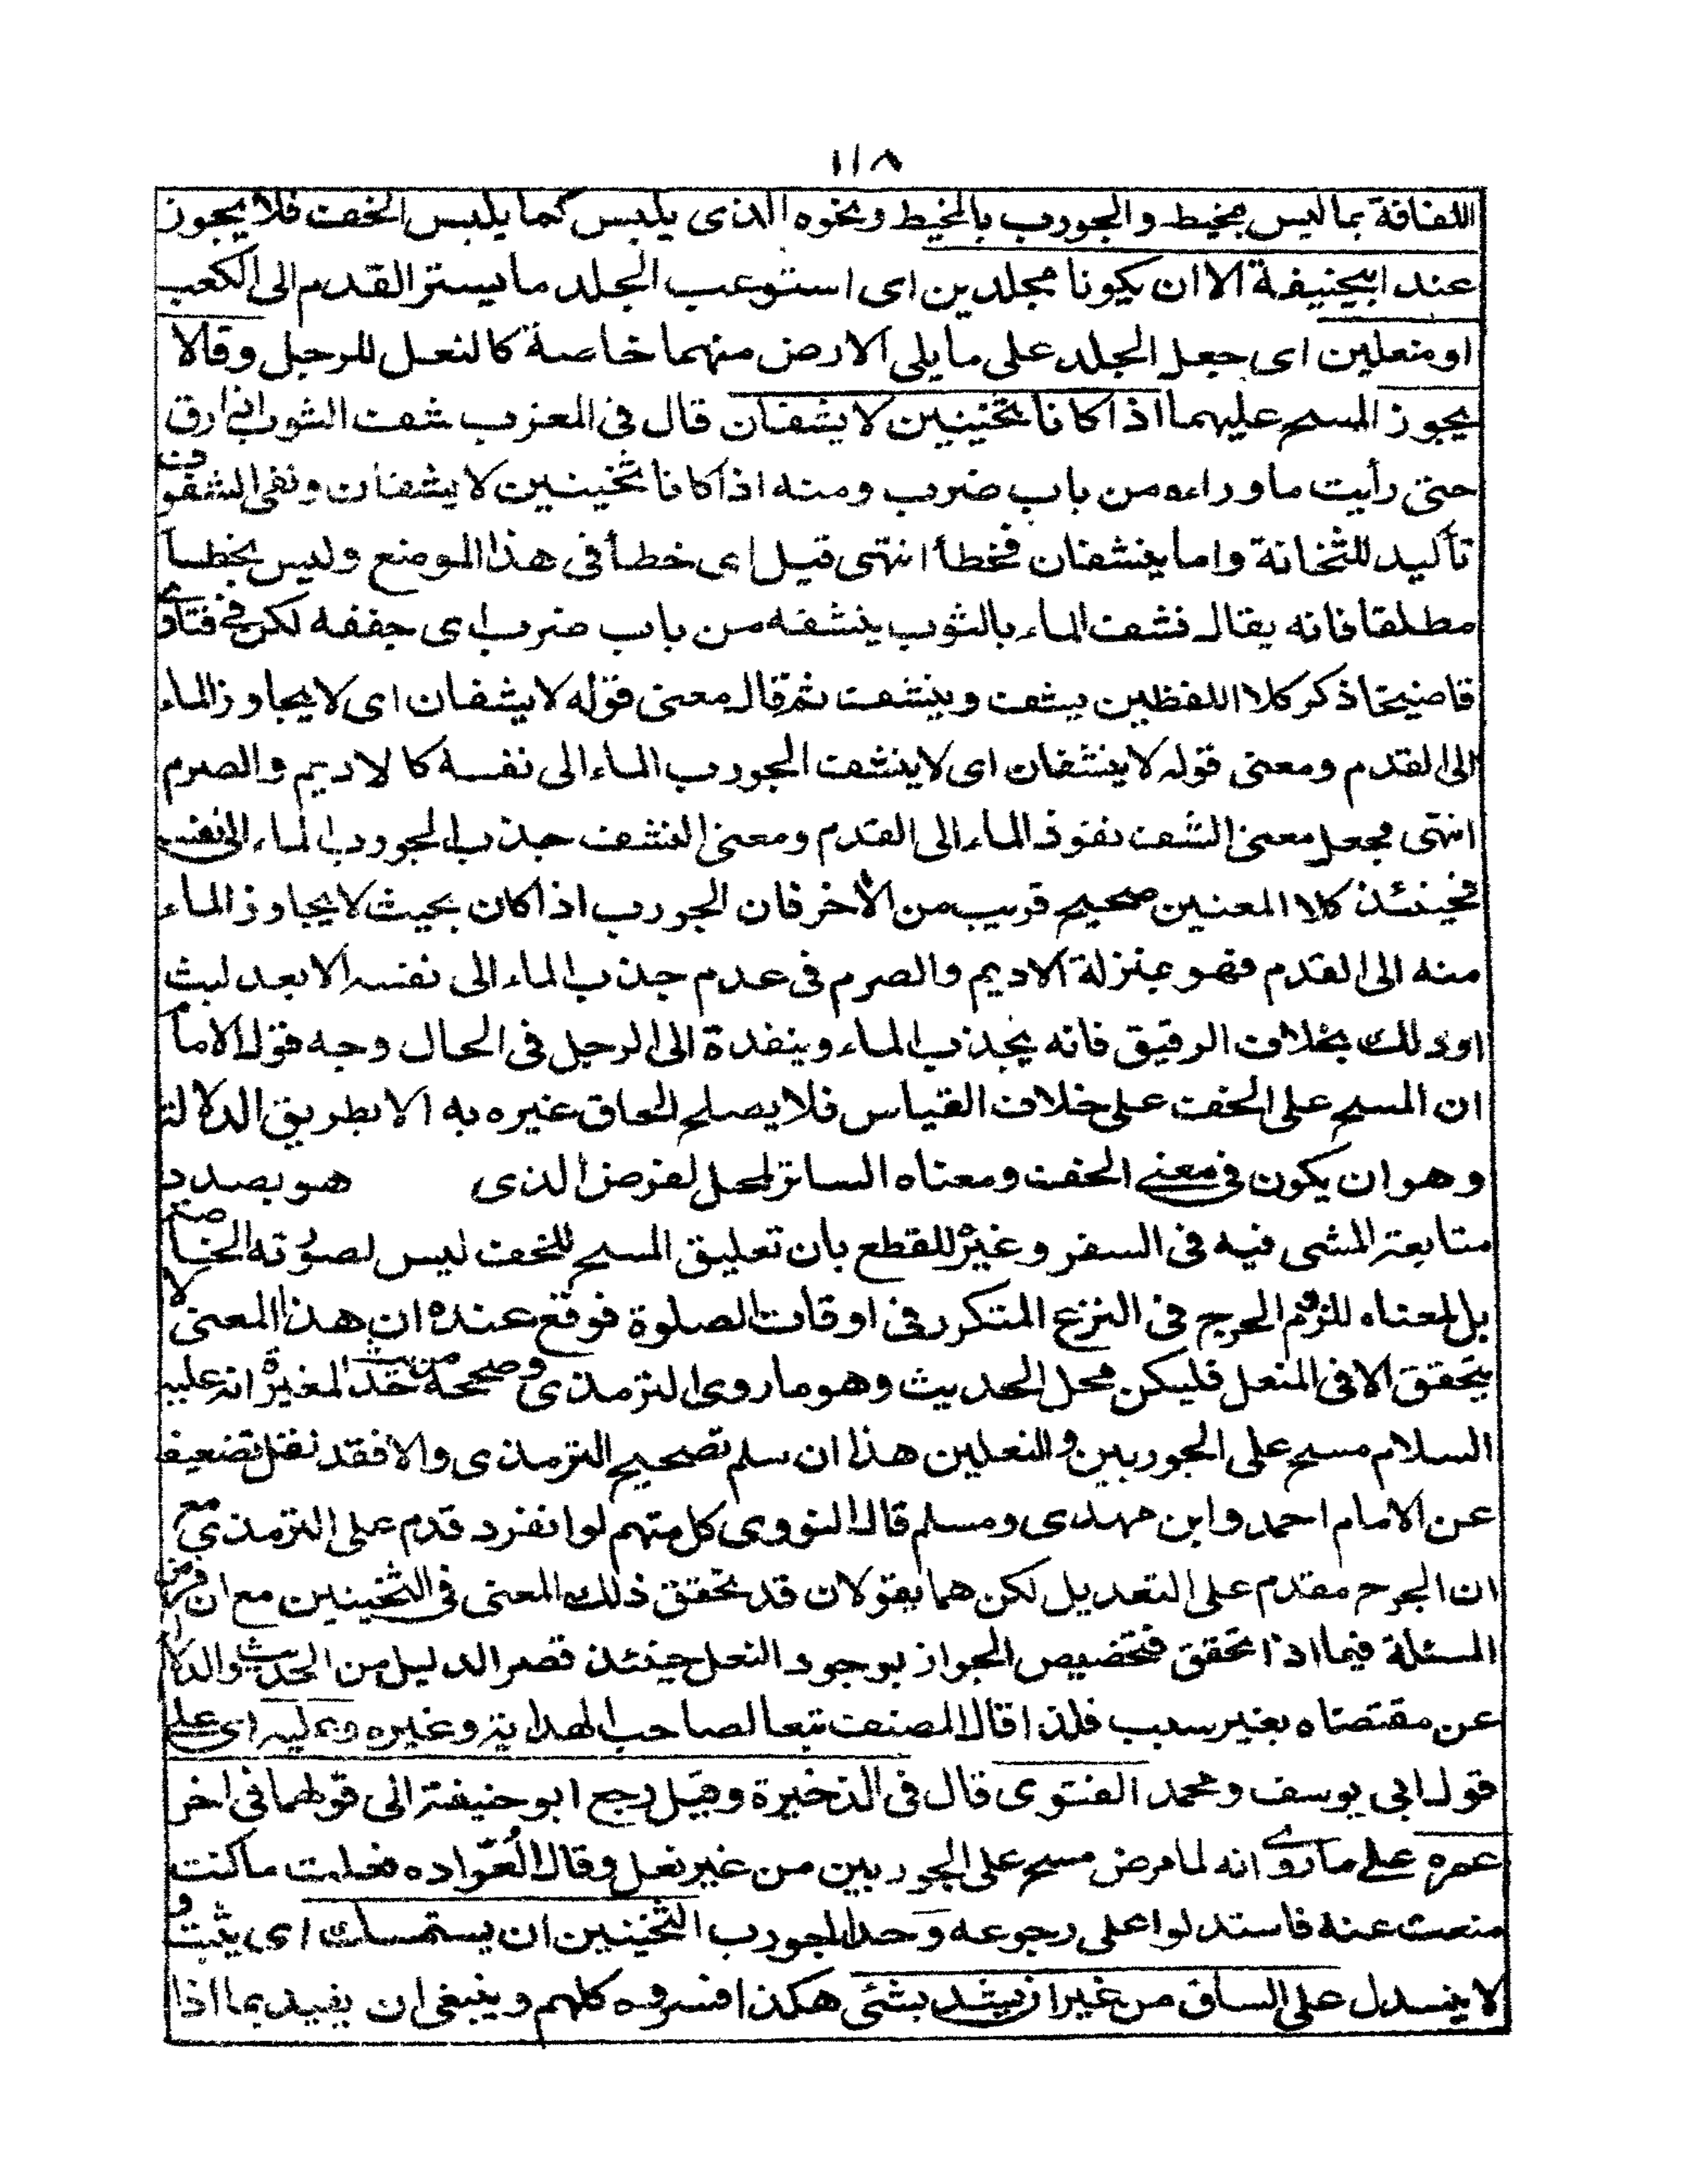 ١١٨
اللفافة بما ليس بمخيط والجورب بالمخيط ونحوه الذى يلبس كما يلبس الخف فلا يجوز
عند ابيحنيفة الا ان يكونا مجلدين اى استوعب الجلد ما يستر القدم الى الكعب
او منعلين اى جعل الجلد على ما يلى الارض منهما خاصة كالنعل للرجل وقالا
يجوز المسح عليهما اذا كانا ثخينين لا يشفان قال فى المعرب شف الثوب اذا رق
حتى رأيت ما وراءه من باب ضرب ومنه اذا كانا ثخينين لا يشفان ونفى الشفوف
تأكيد للثخانة واما ينشفان فخطأ انتهى قيل اى خطأ فى هذا الموضع وليس بخطأ
مطلقا فانه يقال نشف الماء بالثوب ينشفه من باب ضرب اى جففه لكن فى فتاوى
قاضيخا ذكر كلا اللفظين يشف وينشف ثم قال معنى قوله لا يشفان اى لا يجاوز الماء
الى القدم ومعنى قوله لا ينشفان اى لا ينشف الجورب الماء الى نفسه كالاديم والصرم
انتهى فجعل معنى الشف نفوذ الماء الى القدم ومعنى النشف جذب الجورب الماء الى نفسه
فحينئذ كلا المعنين صحيح قريب من الأخر فان الجورب اذا كان بحيث لا يجاوز الماء
منه الى القدم فهو بمنزلة الاديم والصرم فى عدم جذب الماء الى نفسه الا بعد لبث
او دلك بخلاف الرقيق فانه يجذب الماء وينفدة الى الرجل فى الحال وجه قول الامام
ان المسح على الخف على خلاف القياس فلا يصلح الحاق غيره به الا بطريق الدلالة
وهو ان يكون فى معنى الخف ومعناه الساتر لمحل الفرض الذى هو بصدد
متابعة المشى فيه فى السفر وغيره للقطع بان تعليق المسح للخف ليس لصورته الخاصة
بل لمعناه للزوم الحرج فى النزع المتكرر فى اوقات الصلوة فوقع عنده ان هذا المعنى لا
يتحقق الا فى المنعل فليكن محل الحديث وهو ما روى الترمذى وصححه من حديث المغيرة انه عليه
السلام مسح على الجوربين والنعلين هذا ان سلم تصحيح الترمذى والا فقد نقل تضعيفه
عن الامام احمد وابن مهدى ومسلم قال النووى كل منهم لو انفرد قدم على الترمذى مع
ان الجرح مقدم على التعديل لكن هما يقولان قد تحقق ذلك المعنى فى الثخينين مع ان فرض
المسئلة فيما اذا تحقق فتخصيص الجواز بوجود النعل حينئذ قصر الدليل من الحديث والدلالة
عن مقتضاه بغير سبب فلذا قال المصنف تبعا لصاحب الهداية وغيره وعليه اى على
قول ابى يوسف ومحمد الفتوى قال فى الذخيرة وقيل رجع ابو حنيفة الى قولهما فى اخر
عمره على ما روى انه لما مرض مسح على الجوربين من غير نعل وقال لعواده فعلت ما كنت
منعت عنه فاستدلوا على رجوعه وحد الجورب الثخينين ان يستمسك اى يثبت و
لا ينسدل على الساق من غير ان يشد بشئى هكذا فسروه كلهم وينبغى ان يقيد بما اذا